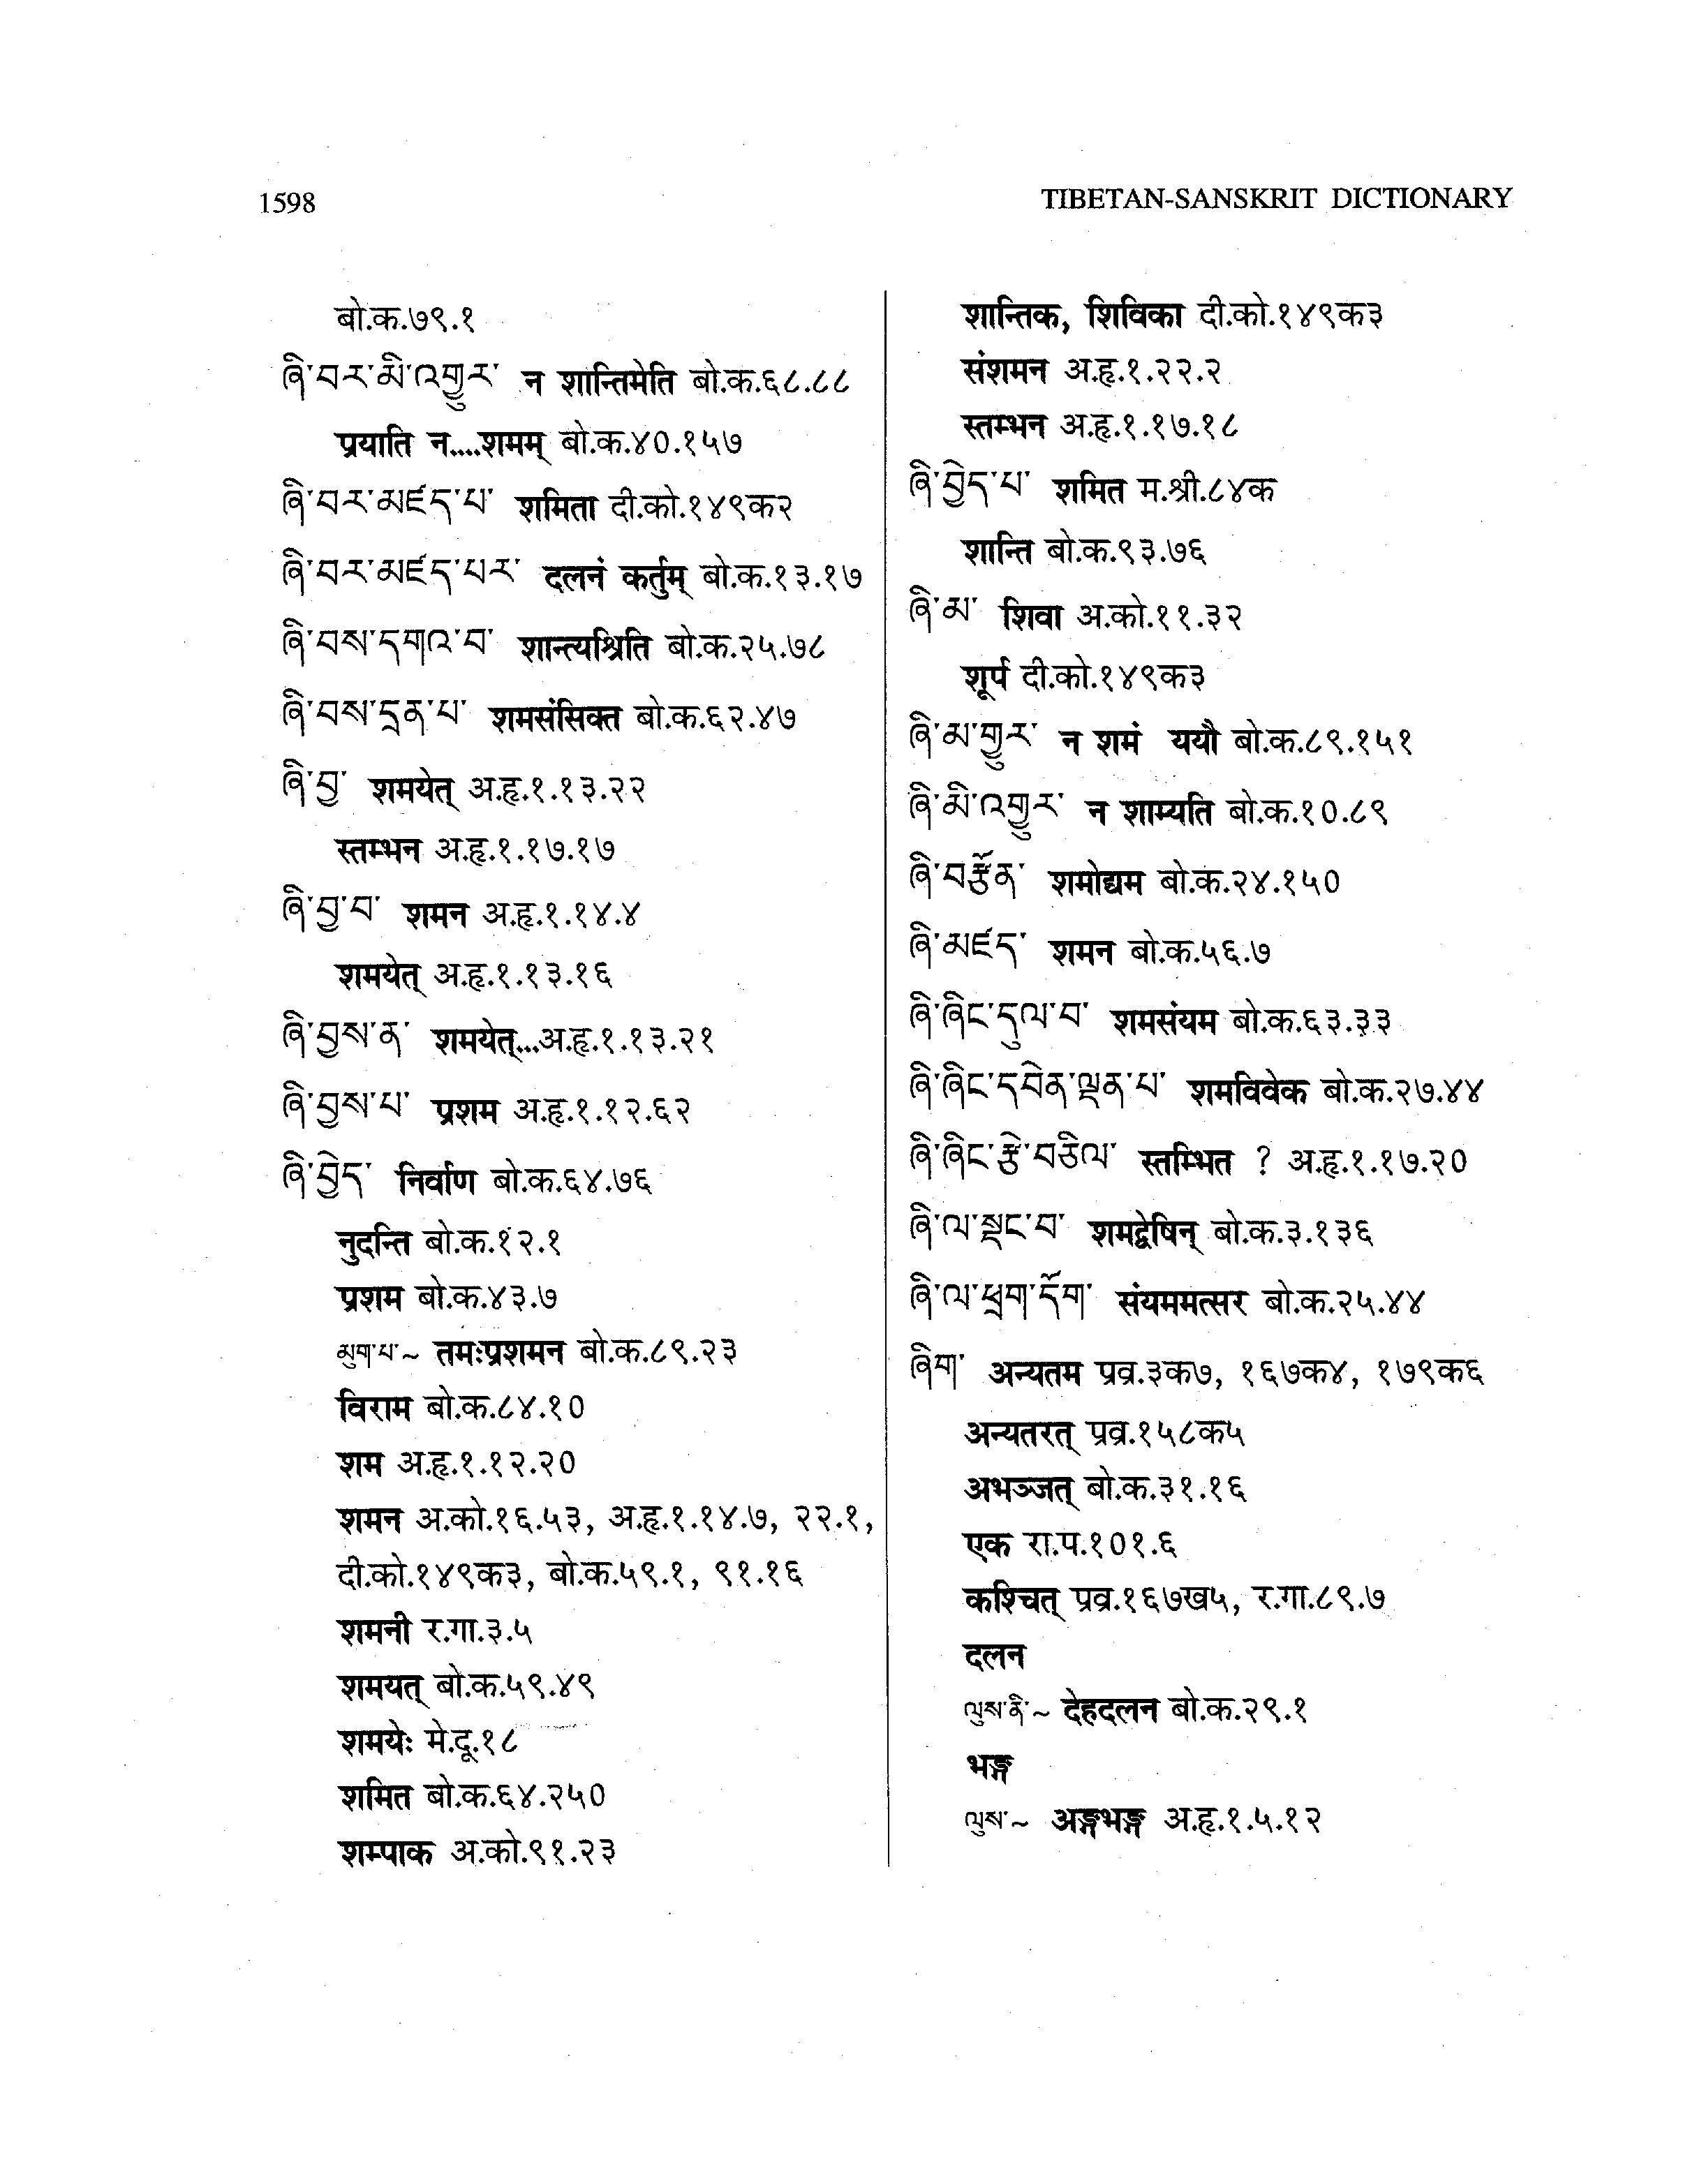 1598
TIBETAN-SANSKRIT DICTIONARY
बो.क.७९.१
ཞི་བར་མི་འགྱུར་ न शान्तिमेति बो.क.६८.८८
प्रयाति न....शमम् बो.क.४०.१५७
ཞི་བར་མཛད་པ་ शमिता दी.को.१४९क२
ཞི་བར་མཛད་པར་ दलनं कर्तुम् बो.क.१३.१७
ཞི་བས་དགའ་བ་ शान्त्यश्रिति बो.क.२५.७८
ཞི་བས་དྲན་པ་ शमसंसिक्त बो.क.६२.४७
ཞི་བྱ་ शमयेत् अ.हृ.१.१३.२२
स्तम्भन अ.हृ.१.१७.१७
ཞི་བྱ་བ་ शमन अ.हृ.१.१४.४
शमयेत् अ.हृ.१.१३.१६
ཞི་བྱས་ན་ शमयेत्...अ.हृ.१.१३.२१
ཞི་བྱས་པ་ प्रशम अ.हृ.१.१२.६२
ཞི་བྱེད་ निर्वाण बो.क.६४.७६
नुदन्ति बो.क.१२.१
प्रशम बो.क.४३.७
མུག་པ་~ तमःप्रशमन बो.क.८९.२३
विराम बो.क.८४.१०
शम अ.हृ.१.१२.२०
शमन अ.को.१६.५३, अ.हृ.१.१४.७, २२.१,
दी.को.१४९क३, बो.क.५९.१, ९१.१६
शमनी र.गा.३.५
शमयत् बो.क.५९.४९
शमयेः मे.दू.१८
शमित बो.क.६४.२५०
शम्पाक अ.को.९१.२३
शान्तिक, शिविका दी.को.१४९क३
संशमन अ.हृ.१.२२.२
स्तम्भन अ.हृ.१.१७.१८
ཞི་བྱེད་པ་ शमित म.श्री.८४क
शान्ति बो.क.९३.७६
ཞི་མ་ शिवा अ.को.११.३२
शूर्प दी.को.१४९क३
ཞི་མ་གྱུར་ न शमं ययौ बो.क.८९.१५१
ཞི་མི་འགྱུར་ न शाम्यति बो.क.१०.८९
ཞི་བརྩོན་ शमोद्यम बो.क.२४.१५०
ཞི་མཛད་ शमन बो.क.५६.७
ཞི་ཞིང་དུལ་བ་ शमसंयम बो.क.६३.३३
ཞི་ཞིང་དབེན་ལྡན་པ་ शमविवेक बो.क.२७.४४
ཞི་ཞིང་རྩེ་བཅིལ་ स्तम्भित ? अ.हृ.१.१७.२०
ཞི་ལ་སྡང་བ་ शमद्वेषिन् बो.क.३.१३६
ཞི་ལ་ཕྲག་དོག་ संयममत्सर बो.क.२५.४४
ཞིག་ अन्यतम प्रव्र.३क७, १६७क४, १७९क६
अन्यतरत् प्रव्र.१५८क५
अभञ्जत् बो.क.३१.१६
एक रा.प.१०१.६
कश्चित् प्रव्र.१६७ख५, र.गा.८९.७
दलन
ལུས་ནི་~ देहदलन बो.क.२९.१
भङ्ग
ལུས་~ अङ्गभङ्ग अ.हृ.१.५.१२